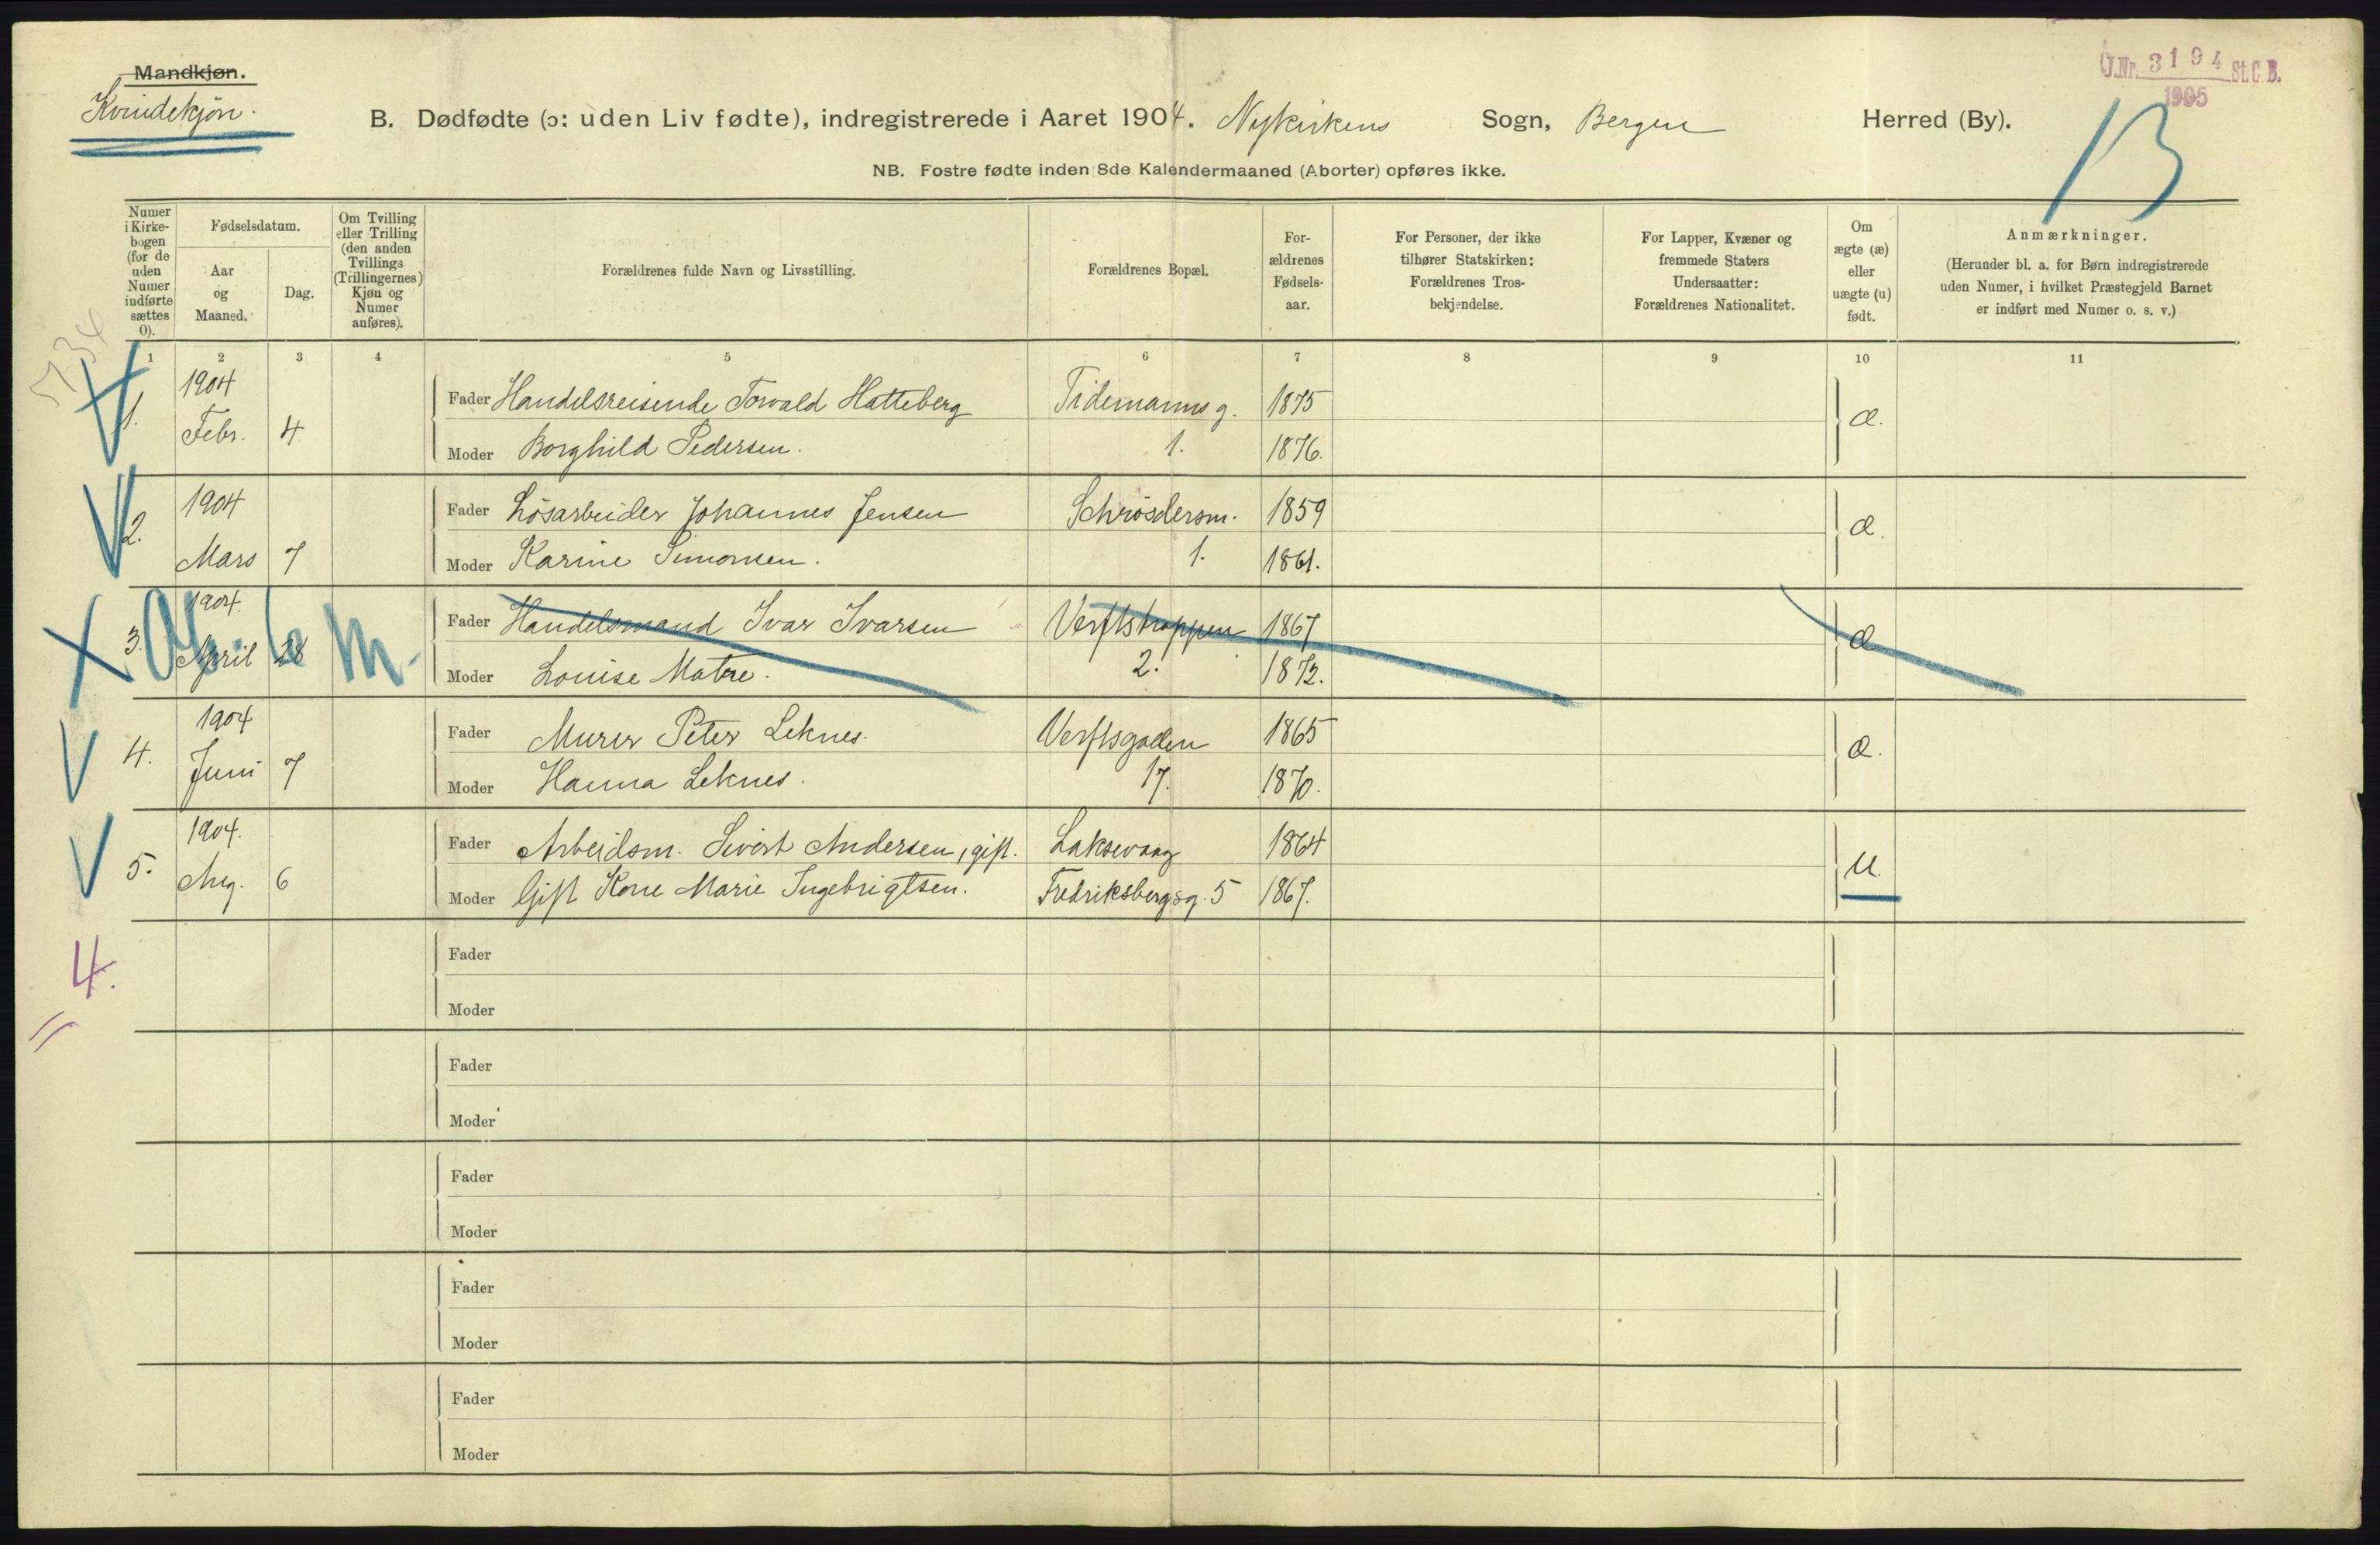 Mandkjøn.
Kvindekjøn.
J.Nr. 3194 St.C.B.
1905
B. Dødfødte (ɔ: uden Liv fødte), indregistrerede i Aaret 1904. Nykirkens Sogn, Bergen Herred (By).
B
NB. Fostre fødte inden 8de Kalendermaaned (Aborter) opføres ikke.
Numer i Kirke-bogen (for de uden Numer indførte sættes 0).
Fødselsdatum.
Aar og Maaned.
Dag.
Om Tvilling eller Trilling (den anden Tvillings (Trillingernes) Kjøn og Numer anføres).
Forældrenes fulde Navn og Livsstilling.
Forældrenes Bopæl.
For-ældrenes Fødsels-aar.
For Personer, der ikke tilhører Statskirken: Forældrenes Tros-bekjendelse.
For Lapper, Kvæner og fremmede Staters Undersaatter: Forældrenes Nationalitet.
Om ægte (æ) eller uægte (u) født.
Anmærkninger.
(Herunder bl. a. for Børn indregistrerede uden Numer, i hvilket Præstegjeld Barnet er indført med Numer o. s. v.)
1 2 3 4 5 6 7 8 9 10 11
1904
Fader Handelsreisende Torvald Hatteberg Tidemannsg. 1875
1. Febr. 4 æ.
Moder Borghild Pedersen. 1. 1876.
1904
Fader Løsarbeider Johannes Jensen Schrøsdersm. 1859
2. Mars 7 æ.
Moder Karine Simonsen. 1. 1861.
1904.
Fader Handelsmand Ivar Ivarsen Verftstrappen 1867
3. April 28 m. æ
Moder Louise Matre. 2. 1872.
1904
Fader Murer Peter Leknes. Verftsgaden 1865
4. Juni 7 æ.
Moder Hanna Leknes. 17. 1870.
1904.
Fader Arbeidsm. Sivert Andersen, gift. Laksevaag 1864
5. Aug. 6 u.
Moder Gift Kone Marie Ingebrigtsen. Fredriksbergsg. 5 1867.
4.
Fader
Moder
Fader
Moder
Fader
Moder
Fader
Moder
Fader
Moder